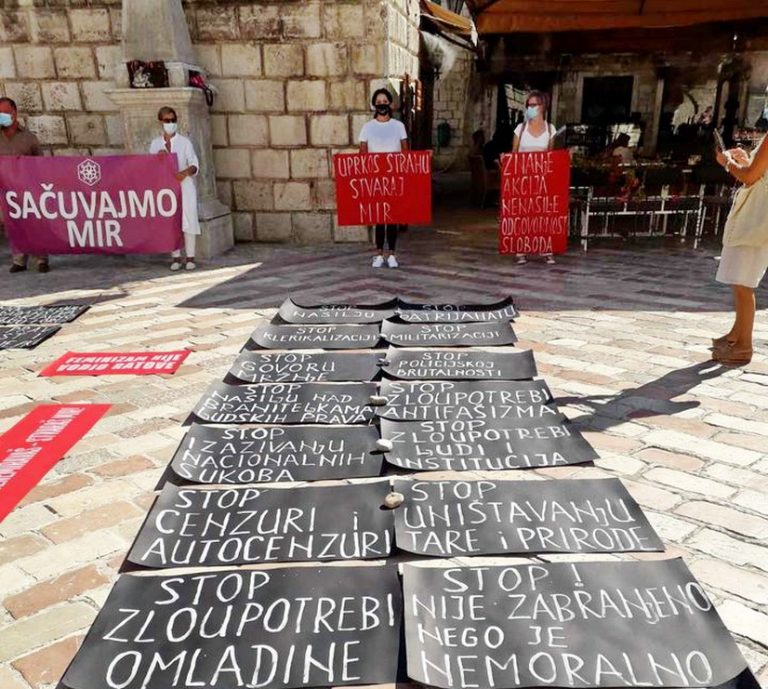 SAČUVAJMO
MIR
UPRKOS STRAHU
STVARAJ
MIR
ZNANJE
AKCIJA
NENASILJE
ODGOVORNOST
SLOBODA
STOP
NASILJU
STOP
PATRIJAHATU
STOP
KLERIKALIZACIJI
STOP
MILITARIZACIJI
STOP
GOVORU
MRŽNJE
STOP
POLICIJSKOJ
BRUTALNOSTI
STOP
NASILJU NAD
BRANITELJKAMA
LJUDSKIH PRAVA
STOP
ZLOUPOTREBI
ANTIFAŠIZMA
STOP
IZAZIVANJU
NACIONALNIH
SUKOBA
STOP
ZLOUPOTREBI
LJUDI I
INSTITUCIJA
STOP
CENZURI i
AUTOCENZURI
STOP
UNIŠTAVANJU
TARE i PRIRODE
STOP
ZLOUPOTREBI
OMLADINE
STOP!
NIJE ZABRANJENO
NEGO JE
NEMORALNO
FEMINIZAM NIJE
VODIO RATOVE